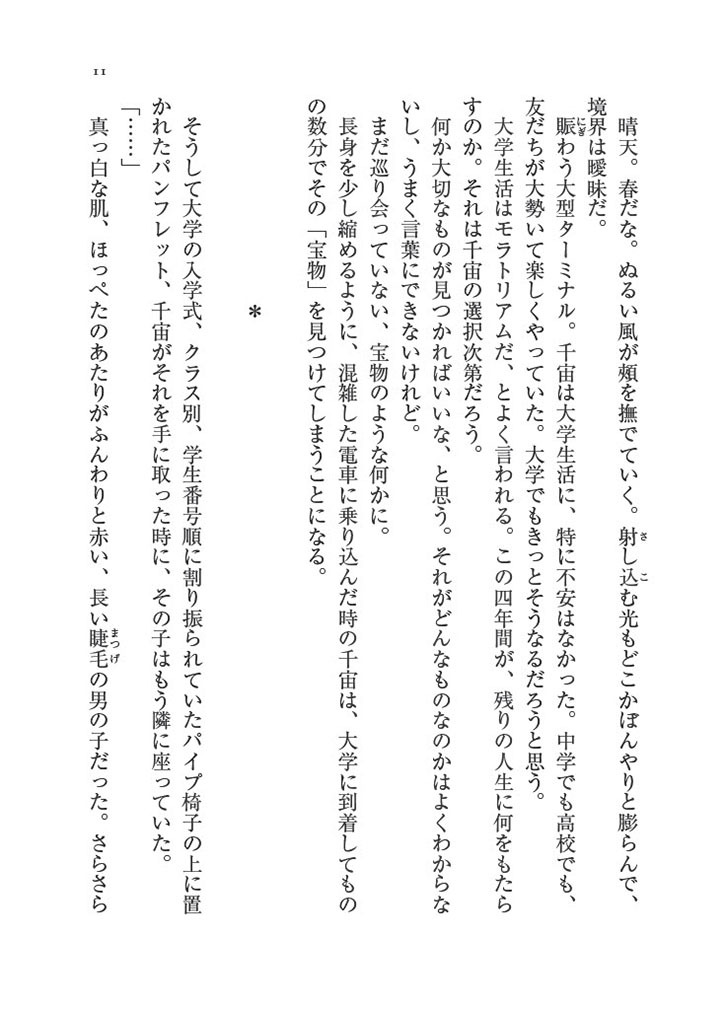 11
晴天。春だな。ぬるい風が頰を撫でていく。射し込む光もどこかぼんやりと膨らんで、
境界は曖昧だ。
賑わう大型ターミナル。千宙は大学生活に、特に不安はなかった。中学でも高校でも、
友だちが大勢いて楽しくやっていた。大学でもきっとそうなるだろうと思う。
大学生活はモラトリアムだ、とよく言われる。この四年間が、残りの人生に何をもたら
すのか。それは千宙の選択次第だろう。
何か大切なものが見つかればいいな、と思う。それがどんなものなのかはよくわからな
いし、うまく言葉にできないけれど。
まだ巡り会っていない、宝物のような何かに。
長身を少し縮めるように、混雑した電車に乗り込んだ時の千宙は、大学に到着してもの
の数分でその「宝物」を見つけてしまうことになる。
*
そうして大学の入学式、クラス別、学生番号順に割り振られていたパイプ椅子の上に置
かれたパンフレット、千宙がそれを手に取った時に、その子はもう隣に座っていた。
「……」
真っ白な肌、ほっぺたのあたりがふんわりと赤い、長い睫毛の男の子だった。さらさら